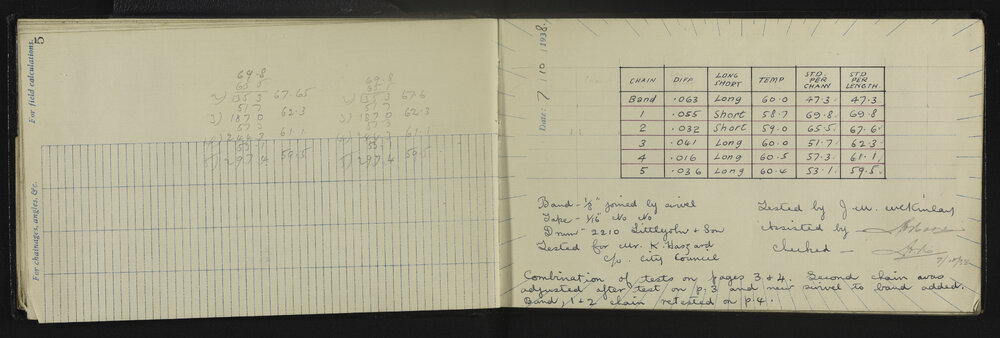 5
For field calculations.
69.8
65.5
2) 135.3 67.65
51.7
3) 187.0 62.3
57.3
4) 244.3 61.1
53.1
5) 297.4 59.5
69.8
65.5
2) 135.3 67.6
51.7
3) 187.0 62.3
57.3
4) 244.3 61.1
53.1
5) 297.4 59.5
For chainages, angles, &c.
Date: 7/10/1938
CHAIN DIFF LONG SHORT TEMP STD. PER CHAIN STD PER LENGTH
Band .063 Long 60.0 47.3 47.3
1 .055 Short 58.7 69.8 69.8
2 .032 Short 59.0 65.5 67.6
3 .041 Long 60.0 51.7 62.3
4 .016 Long 60.5 57.3 61.1
5 .036 Long 60.4 53.1 59.5
Band - 1/8" joined by swivel
Tape - 1/16" No No
Drum - 2210 Littlejohn & Son
Tested for Mr. K. Haszard
c/o. City Council
Tested by J. W. McKinlay
Assisted by
Checked —
7/10/38
Combination of tests on pages 3 & 4. Second chain was
adjusted after test on p. 3 and new swivel to band added.
Band, 1 & 2 chain retested on p. 4.